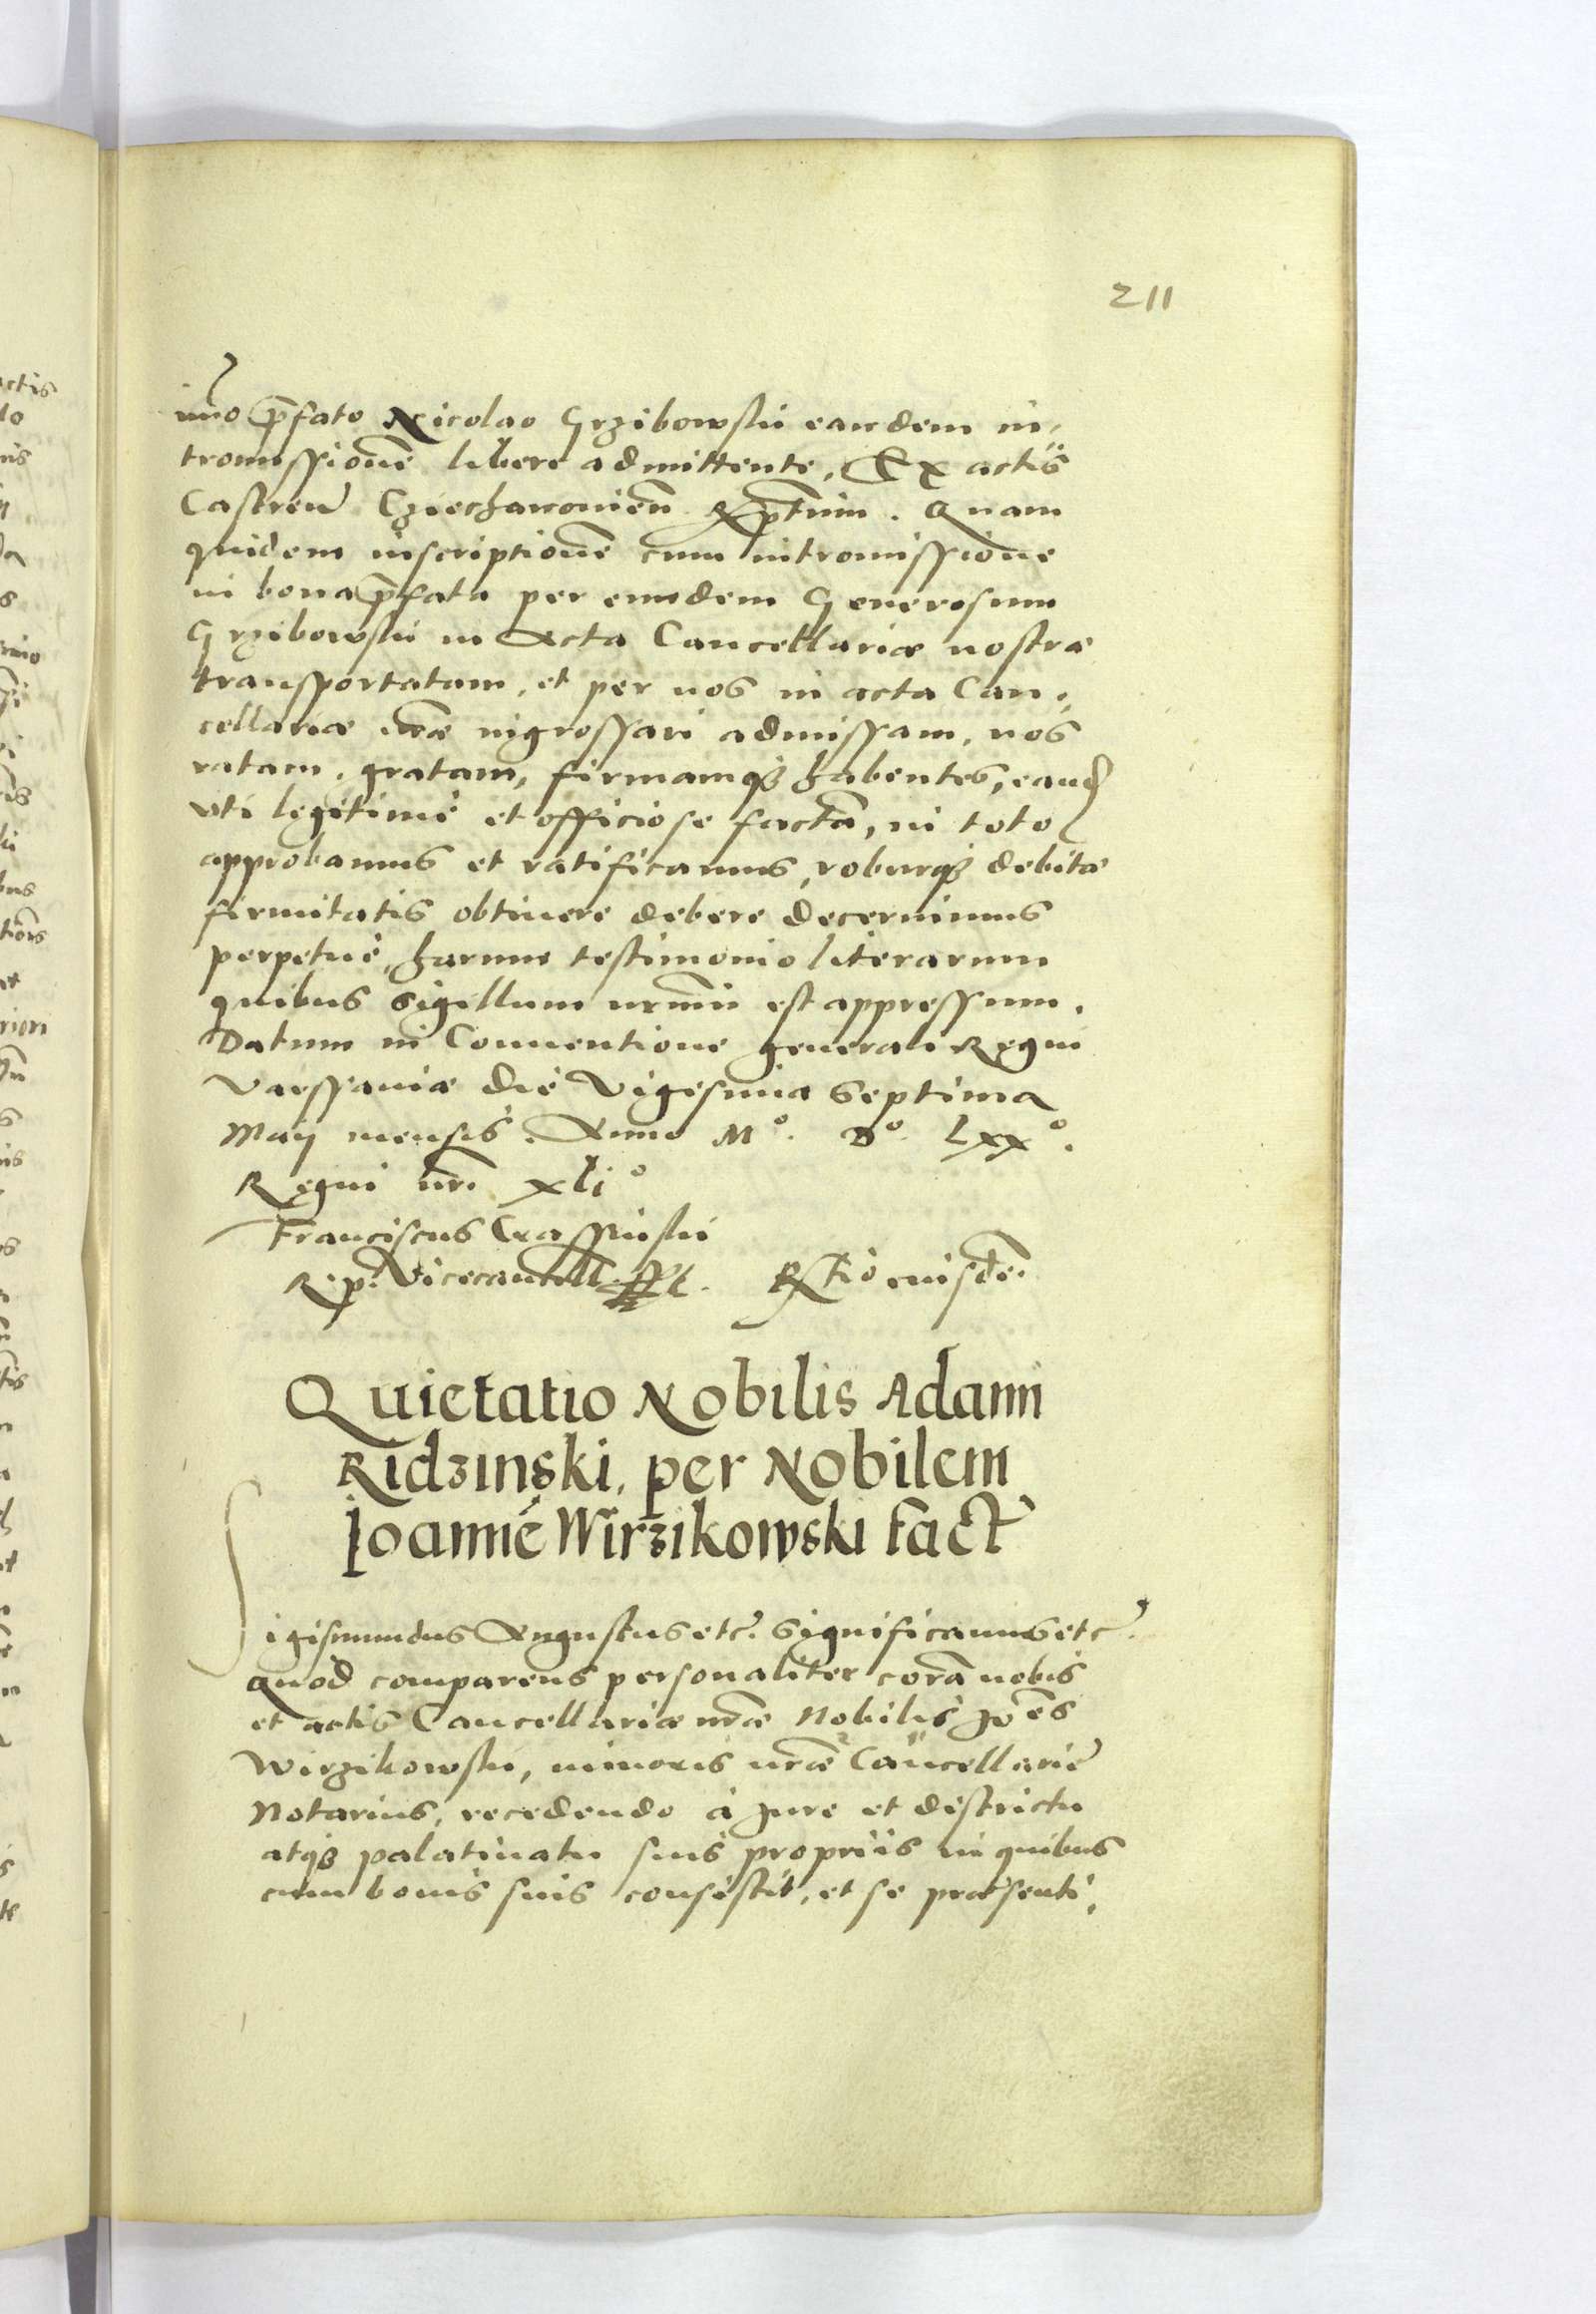 211
imo p̄fato Nicolao Grzibowski eandem in-
tromissionē libere admittente. Ex actis
Castren̄ Cziechanouien̄ Rp̄tum. Quam
quidem inscriptionē cum intromissione
in bona p̄fata per eundem Generosum
Grzibowski in Acta Cancellariæ nostræ
transportatam, et per nos in acta Can-
cellariæ nr̄æ ingrossari admissam, nos
ratam, gratam, firmamq3 habentes, eand
vti legitimè et officiose factā, in toto
approbamus et ratificamus, roburq3 debitæ
firmitatis obtinere debere decernimus
perpetuè, harum testimonio literarum
quibus sigillum nr̄um est appressum.
Datum in Conuentione generali Regni
Varssauiæ die Vigesima Septima
Maij mensis. Anno Mº. Dº. Lxxº.
Regni nr̄i xliº
Franciscus Crassinski
R. p. Vicecancell. sst. Rtio eiusdē.
Quietatio Nobilis Adami
Ridzinski, per Nobilem
Ioannē Wirzikowski fact
Sigismundus Augustus etc. significamus etc.
Quod comparens personaliter corā nobis
et actis Cancellariæ nr̄æ Nobilis Joēs
Wirzikowski, minoris nr̄æ Cancellarie
Notarius, recedendo à jure et districtu
atq3 palatinatu suis propriis in quibus
cum bonis suis consistit, et se præsenti,